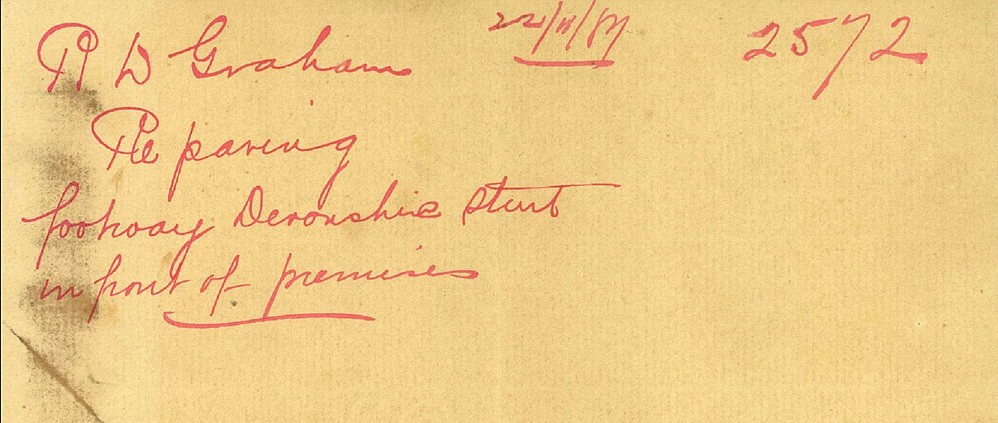 R D Graham 22/11/87 2572
Re paving
footway Devonshire Street
in front of premises